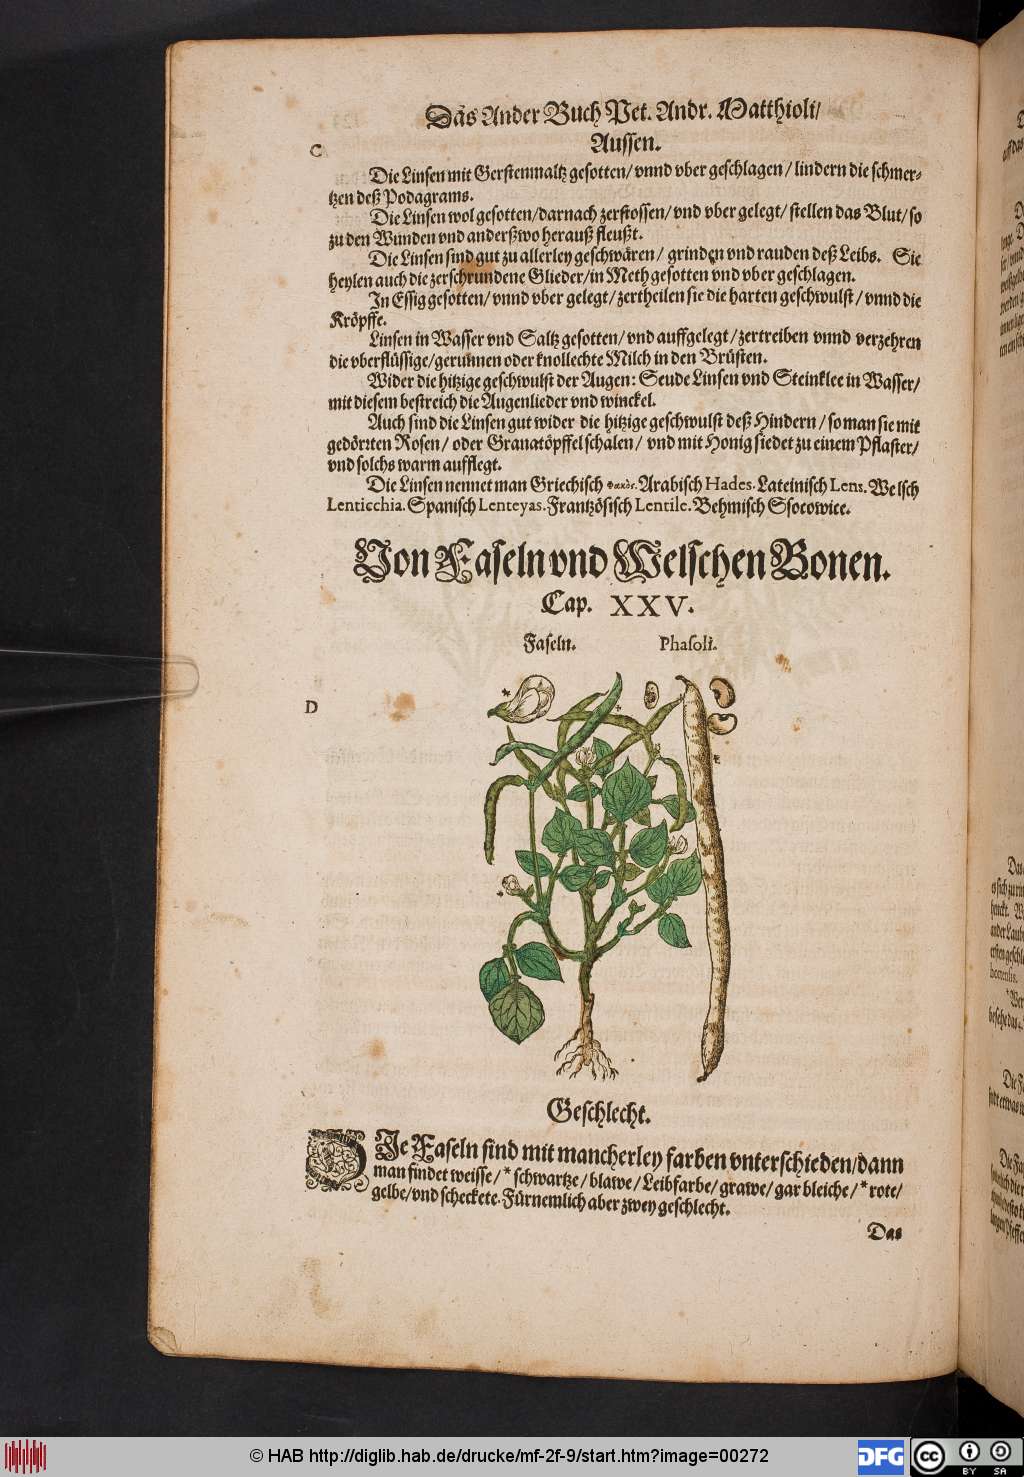 Das Ander Buch Pet. Andr. Matthioli/
Aussen.
C
Die Linsen mit Gerstenmaltz gesotten/ vnnd vber geschlagen/ lindern die schmer-
tzen deß Podagrams.
Die Linsen wol gesotten/darnach zerstossen/ vnd vber gelegt/ stellen das Blut/ so
zu den Wunden vnd anderßwo herauß fleußt.
Die Linsen sind gut zu allerley geschwären/ grinden vnd rauden deß Leibs. Sie
heylen auch die zerschrundene Glieder/in Meth gesotten vnd vber geschlagen.
In Essig gesotten/ vnnd vber gelegt/ zertheilen sie die harten geschwulst/ vnnd die
Kröpffe.
Linsen in Wasser vnd Saltz gesotten/ vnd auffgelegt/ zertreiben vnnd verzehren
die vberflüssige/gerunnen oder knollechte Milch in den Brüsten.
Wider die hitzige geschwulst der Augen: Seude Linsen vnd Steinklee in Wasser/
mit diesem bestreich die Augenlieder vnd winckel.
Auch sind die Linsen gut wider die hitzige geschwulst deß Hindern/ so man sie mit
gedörrten Rosen/ oder Granatöpffel schalen/ vnd mit Honig siedet zu einem Pflaster/
vnd solchs warm aufflegt.
Die Linsen nennet man Griechisch Φακὸς. Arabisch Hades. Lateinisch Lens. Welsch
Lenticchia. Spanisch Lenteyas. Frantzösisch Lentile. Behmisch Ssocowice.
Von Faseln vnd Welschen Bonen.
Cap. XXV.
Faseln. Phasoli.
D
Geschlecht.
DIe Faseln sind mit mancherley farben vnterschieden/dann
man findet weisse/ * schwartze/ blawe/ Leibfarbe/ grawe/ gar bleiche/ * rote/
gelbe/ vnd scheckete. Fürnemlich aber zwey geschlecht.
Das
© HAB http://diglib.hab.de/drucke/mf-2f-9/start.htm?image=00272
DFG
cc BY SA